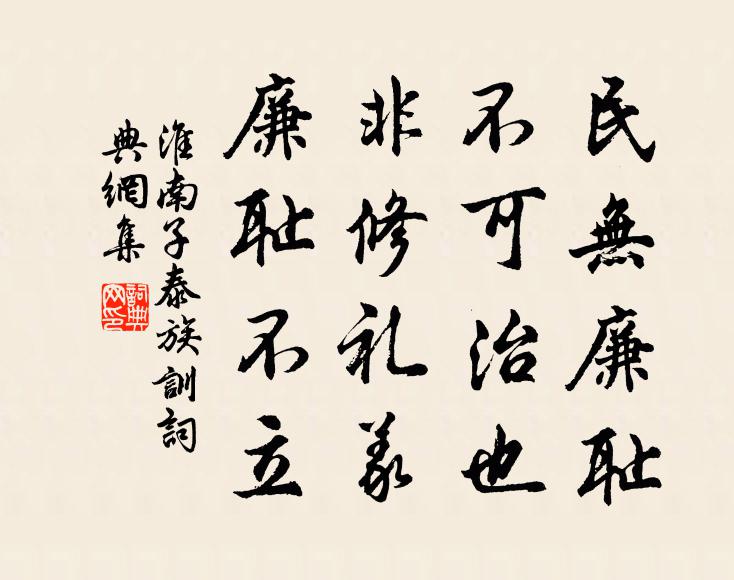 民無廉耻
不可治也
非修礼義
廉耻不立
淮南子泰族訓詞
典網集
詞典網印